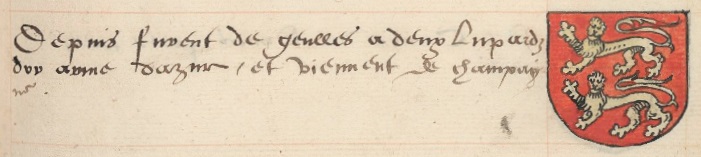 Depuis furent de geulles a deux Lupardz
dor arme dazur / et viennent de champai
ne